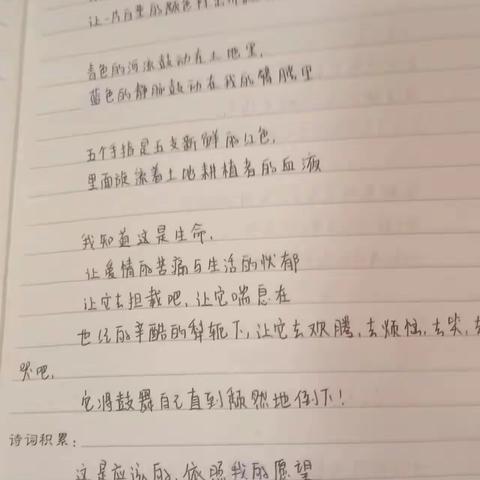 让一片白里的颜色
青色的河流鼓动在土地里,
蓝色的静脉鼓动在我的臂腕里
五个手指是五支新鲜的红色,
里面旋流着土地耕植者的血液
我知道这是生命,
让爱情的苦痛与生活的忧郁
让它去担载吧,让它喘息在
世纪的辛酷的犁轭下,让它去欢腾,去烦恼,去笑,去
哭吧,
它将鼓舞自己直到颓然地倒下!
诗词积累:
这是应该的,依照我的愿望